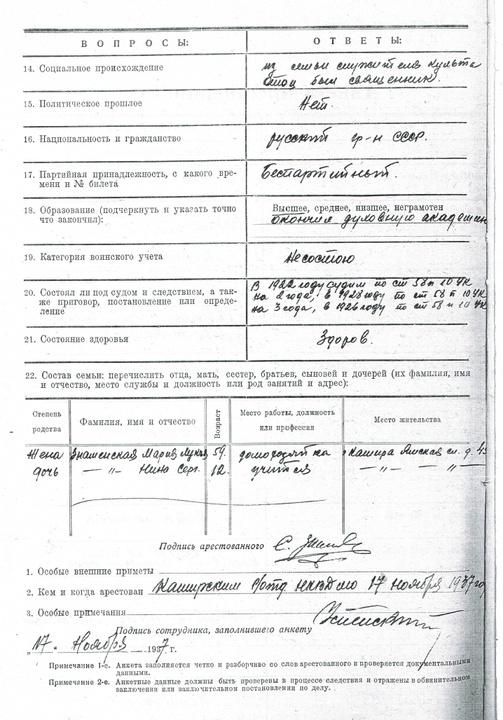 ВОПРОСЫ: ОТВЕТЫ:
14. Социальное происхождение
из семьи служителя культа
отец был священник.
15. Политическое прошлое
Нет.
16. Национальность и гражданство
русский гр-н СССР.
17. Партийная принадлежность, с какого вре-
мени и № билета
Беспартийный.
18. Образование (подчеркнуть и указать точно
что закончил):
Высшее, среднее, низшее, неграмотен
окончил духовную академию
19. Категория воинского учета
Несостою
20. Состоял ли под судом и следствием, а так-
же приговор, постановление или опреде-
ление
В 1922 году судим по ст 58 п 10 УК
на 2 года, в 1923 году по ст 58 п 10 УК
на 3 года, в 1926 году по ст 58 п 10 УК
21. Состояние здоровья
Здоров.
22. Состав семьи: перечислить отца, мать, сестер, братьев, сыновей и дочерей (их фамилия, имя
и отчество, место службы и должность или род занятий и адрес):
Степень
родства
Фамилия, имя и отчество
Возраст
Место работы, должность
или профессия
Место жительства
Жена Знаменская Мария 59. домохозяйка Кашира Ямская сл. д.
дочь — „ — Нина Серг. 12. учится — „ — „ —
Подпись арестованного
1. Особые внешние приметы
2. Кем и когда арестован Каширским НКВД 17 ноября 1937 го
3. Особые примечания
Подпись сотрудника, заполнившего анкету
„17. Ноября 1937 г.
Примечание 1-е. Анкета заполняется четко и разборчиво со слов арестованного и проверяется документальными
данными.
Примечание 2-е. Анкетные данные должны быть проверены в процессе следствия и отражены в обвинительном
заключении или заключительном постановлении по делу.